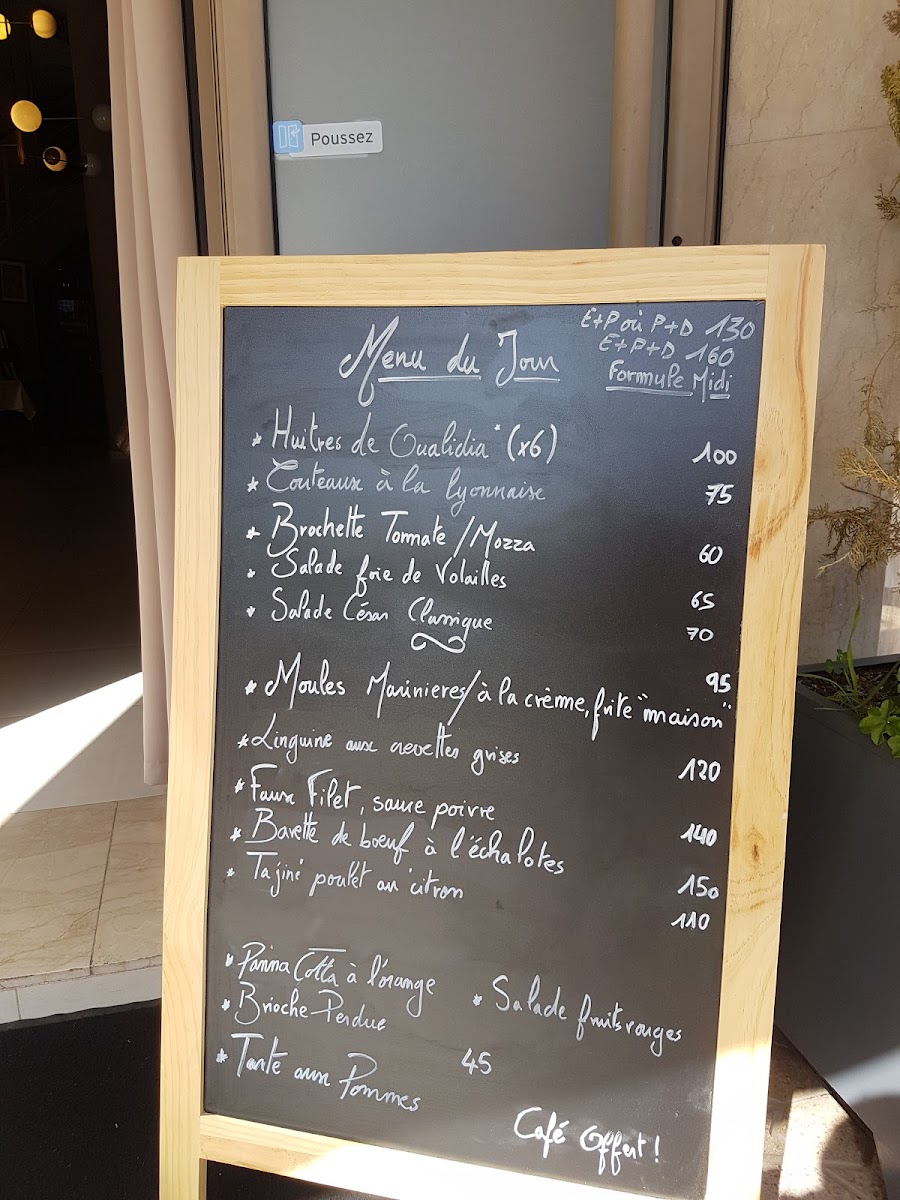 Poussez
E+P où P+D 130
E+P+D 160
Formule Midi
Menu du Jour
* Huitres de Oualidia* (x6) 100
* Couteaux à la lyonnaise 75
* Brochette Tomate/Mozza 60
* Salade foie de Volailles 65
* Salade César Classique 70
* Moules Marinieres/à la crème, frite "maison" 95
* Linguine aux crevettes grises 120
* Faux Filet, sauce poivre 140
* Bavette de boeuf à l'échalotes 150
* Tajine poulet au citron 110
* Panna Cotta à l'orange
* Salade fruits rouges
* Brioche Perdue
45
* Tarte aux Pommes
Café Offert !